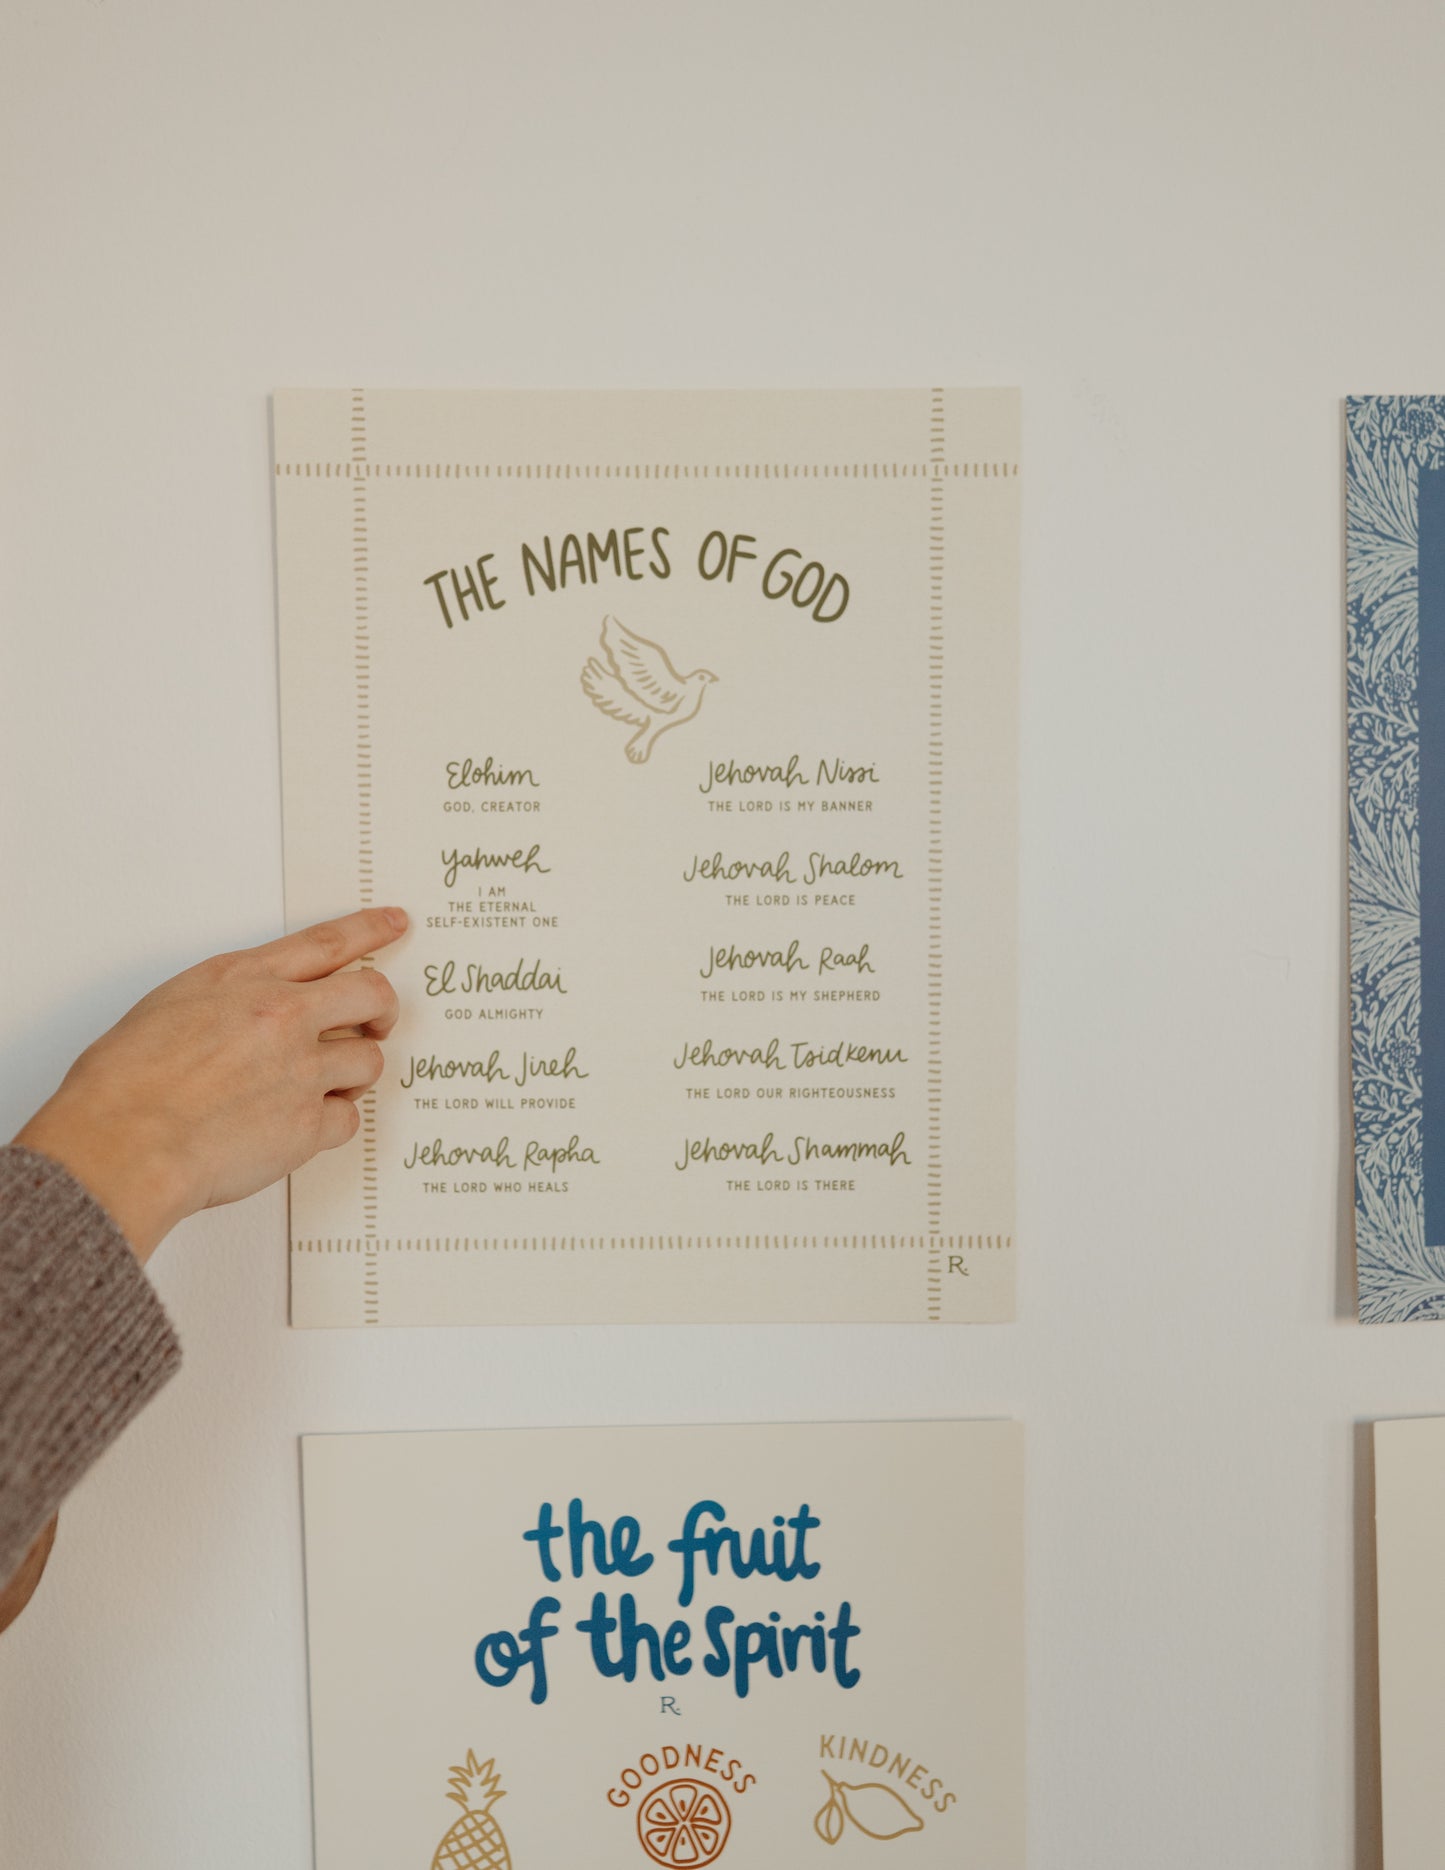 THE NAMES OF GOD
Elohim
GOD, CREATOR
Yahweh
I AM
THE ETERNAL
SELF-EXISTENT ONE
El Shaddai
GOD ALMIGHTY
Jehovah Jireh
THE LORD WILL PROVIDE
Jehovah Rapha
THE LORD WHO HEALS
Jehovah Nissi
THE LORD IS MY BANNER
Jehovah Shalom
THE LORD IS PEACE
Jehovah Raah
THE LORD IS MY SHEPHERD
Jehovah Tsidkenu
THE LORD OUR RIGHTEOUSNESS
Jehovah Shammah
THE LORD IS THERE
R.
the fruit
of the spirit
R.
GOODNESS
KINDNESS